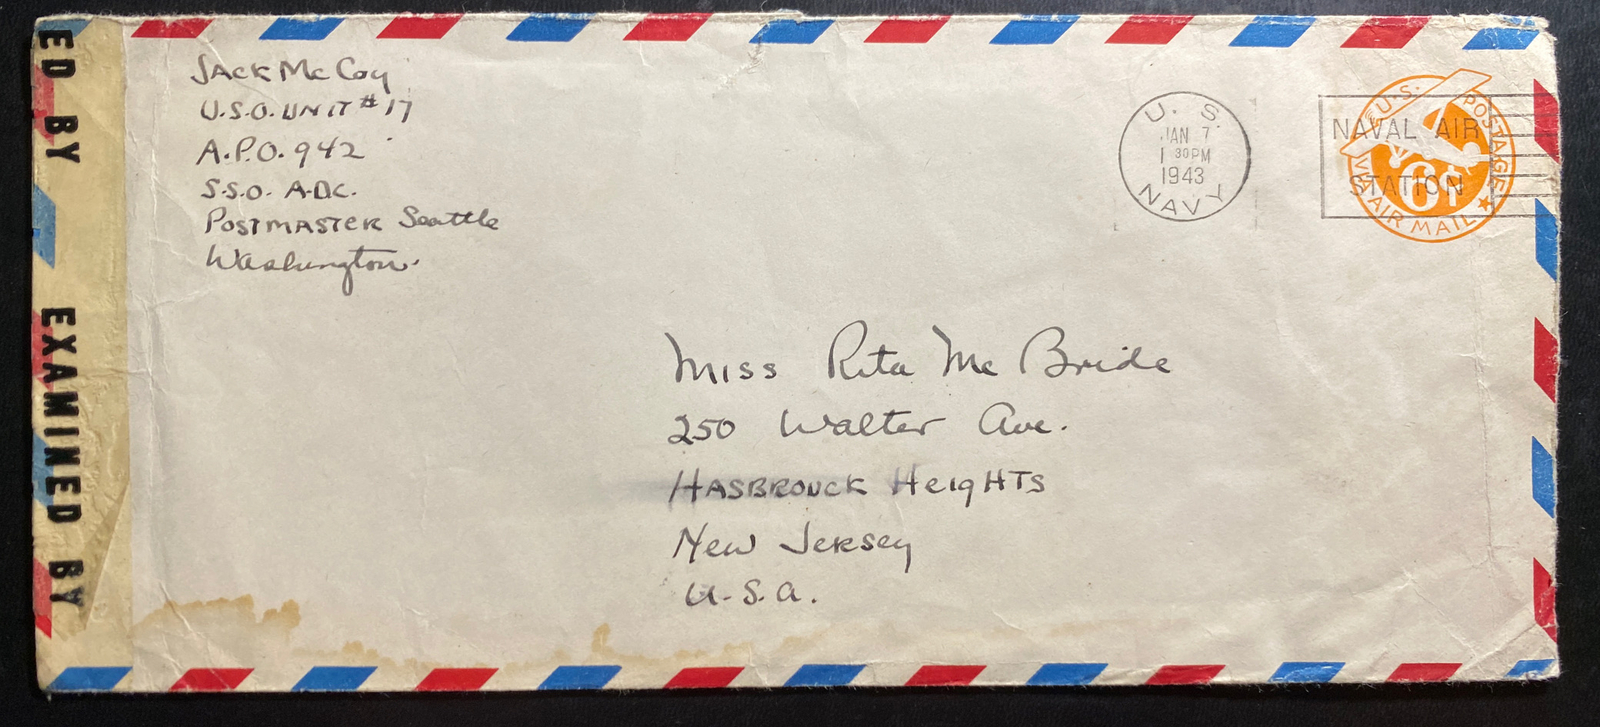 Jack McCoy
U.S.O. UNIT #17
A.P.O. 942
S.S.O. A.D.C.
Postmaster Seattle
Washington.
U. S.
JAN 7
1 30PM
1943
NAVY
NAVAL AIR
STATION
U.S. POSTAGE
6¢
VIA AIR MAIL
Miss Rita McBride
250 Walter Ave.
Hasbrouck Heights
New Jersey
U.S.A.
ED BY
EXAMINED BY